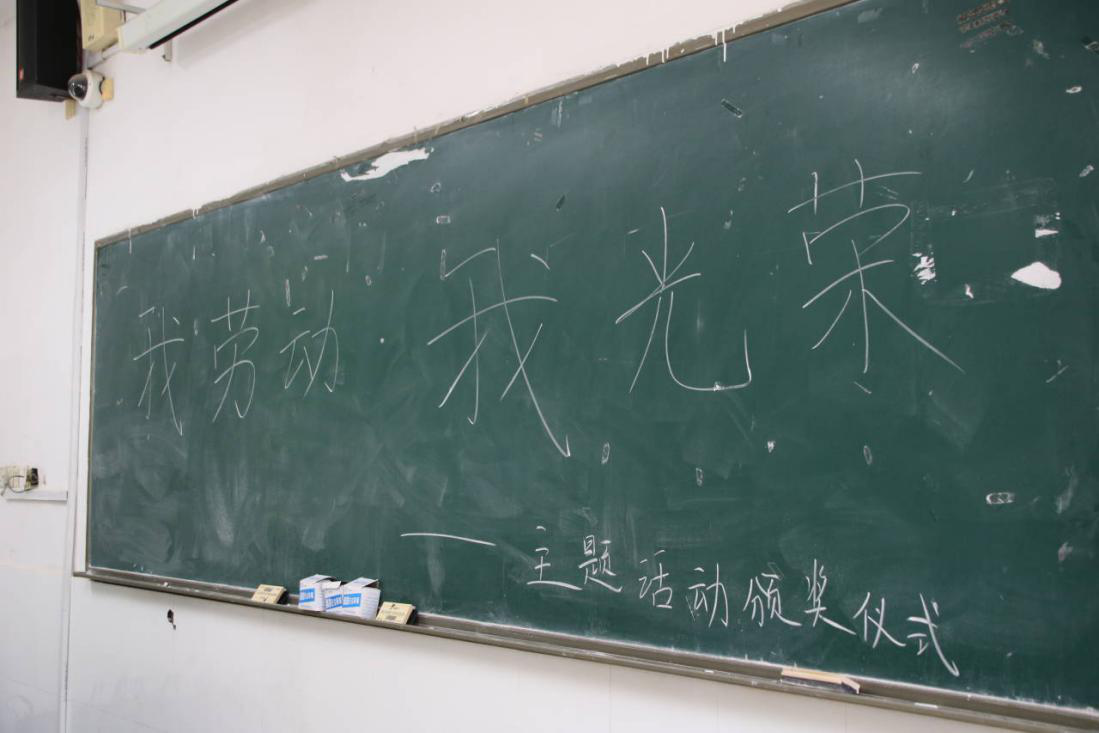 我劳动·我光荣
—主题活动颁奖仪式